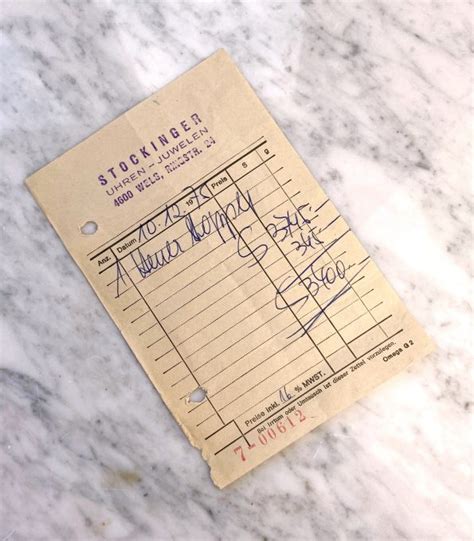 STOCKINGER
UHREN - JUWELEN
4600 WELS, RINGSTR. 24
Anz. Datum 10.12. 1975 Preis S g
1 Heuer S 3745.-
345.-
S 3400.-
Preise inkl. 16 % MWST.
Bei Irrtum oder Umtausch ist dieser Zettel vorzulegen.
Omega G 2
7-00612